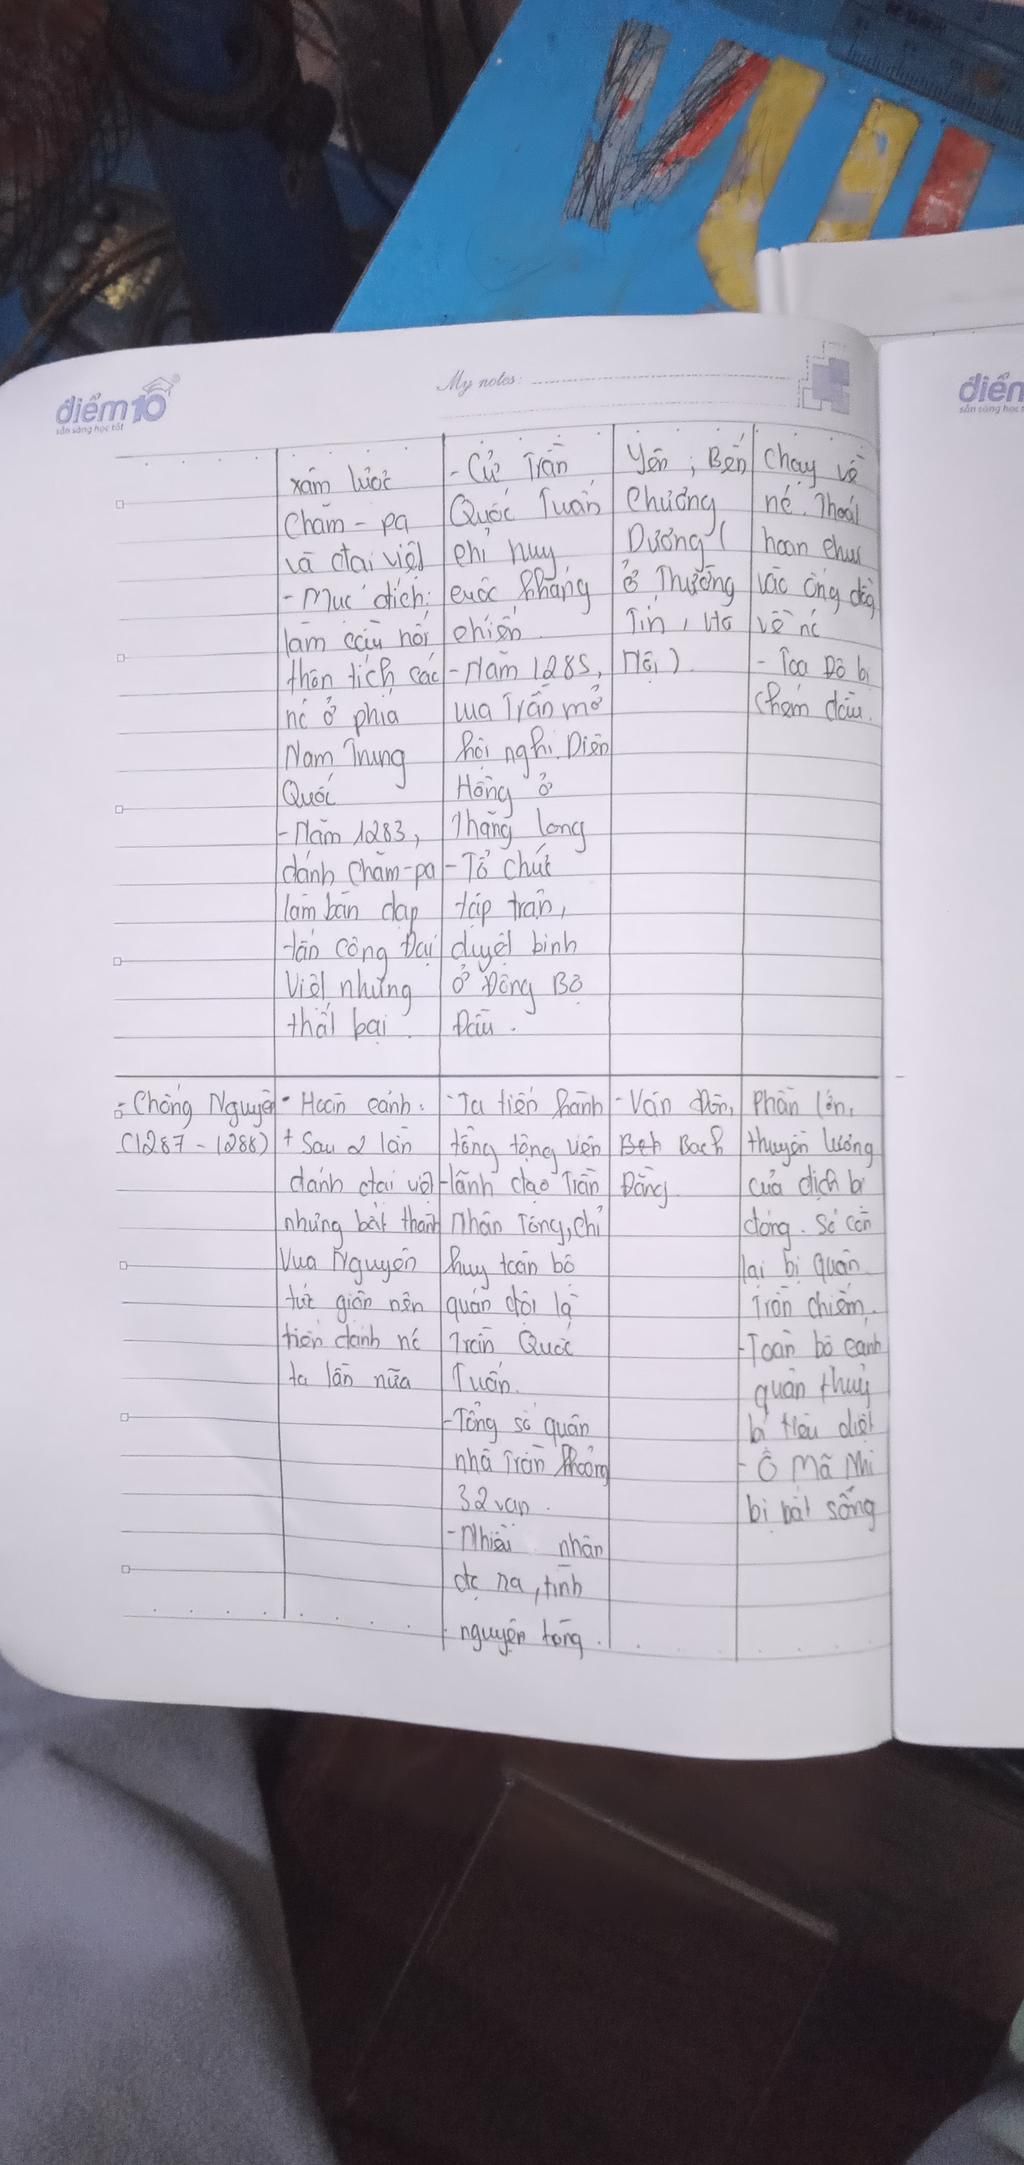 điểm10
sẵn sàng học tốt
My notes:
điển
sẵn sàng học t
xâm lược
Chăm - pa
và đại việt
- Mục đích:
làm cầu nối
thôn tích các
nc ở phía
Nam Trung
Quốc
- Năm 1283,
đánh Chăm-pa
làm bàn đạp
tấn công Đại
Việt nhưng
thất bại.
- Cử Trần
Quốc Tuấn
chỉ huy
cuộc kháng
chiến.
- Năm 1285,
vua Trần mở
hội nghị Diên
Hồng ở
Thăng long
- Tổ chức
tập trận,
duyệt binh
ở Đông Bộ
Đầu.
Yên, Bến
Chương
Dương (
ở Thường
Tín, Hà
Nội)
Chạy về
nc. Thoát
hoan chui
vào ống đồng
về nc
- Toa Đô bị
Chém đầu.
- Chống Nguyên
(1287 - 1288)
- Hoàn cảnh:
+ Sau 2 lần
đánh đại việt
nhưng bất thành
Vua Nguyên
tức giận nên
tiến đánh nc
ta lần nữa
- Ta tiến hành
tổng tông viên
- lãnh đạo Trần
Nhân Tông, chỉ
huy toàn bộ
quân đội là
Trần Quốc
Tuấn.
- Tổng số quân
nhà Trần khoảng
32 vạn.
- Nhiều nhân
dc ra, tình
nguyện tòng.
- Vân Đồn,
Bạch
Đằng.
Phần lớn,
thuyền lương
của địch bị
đóng. Số còn
lại bị quân
Trần chiếm.
- Toàn bộ cánh
quân thuỷ
bị tiêu diệt
- Ô Mã Nhi
bị bắt sống